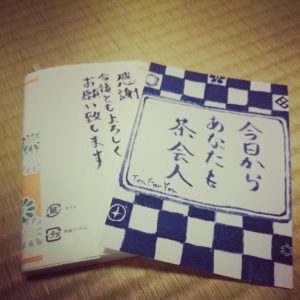 感謝
今後ともよろしく
お願い致します
今日から
あなたも
茶会人
Tea For You
紙
プラ